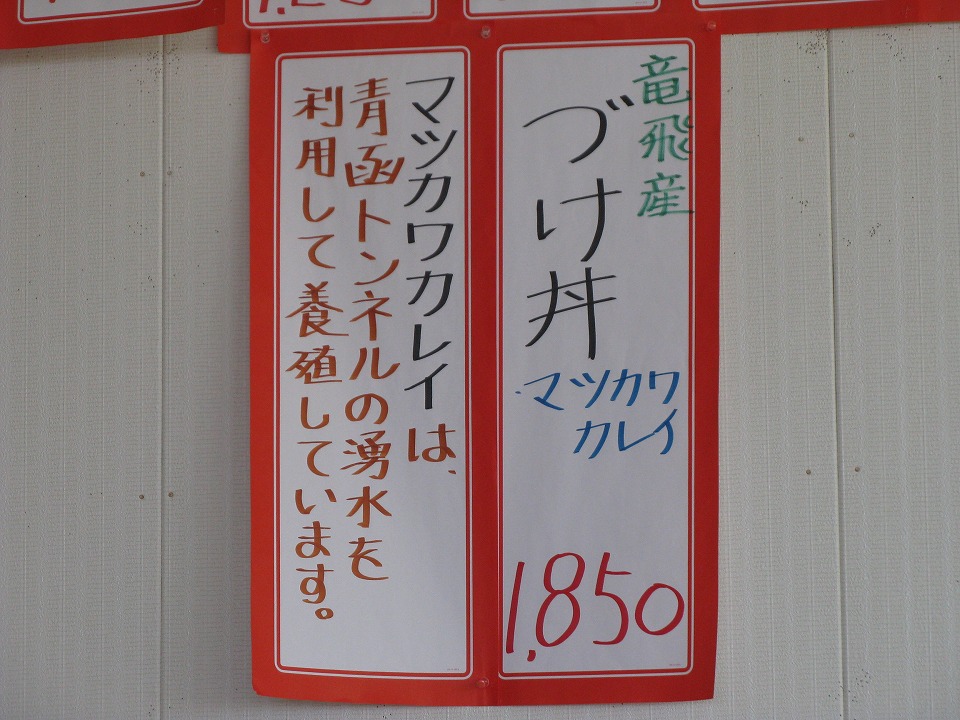 竜飛産
づけ丼
・マツカワ
カレイ
1,850
マツカワカレイは、
青函トンネルの湧水を
利用して養殖しています。